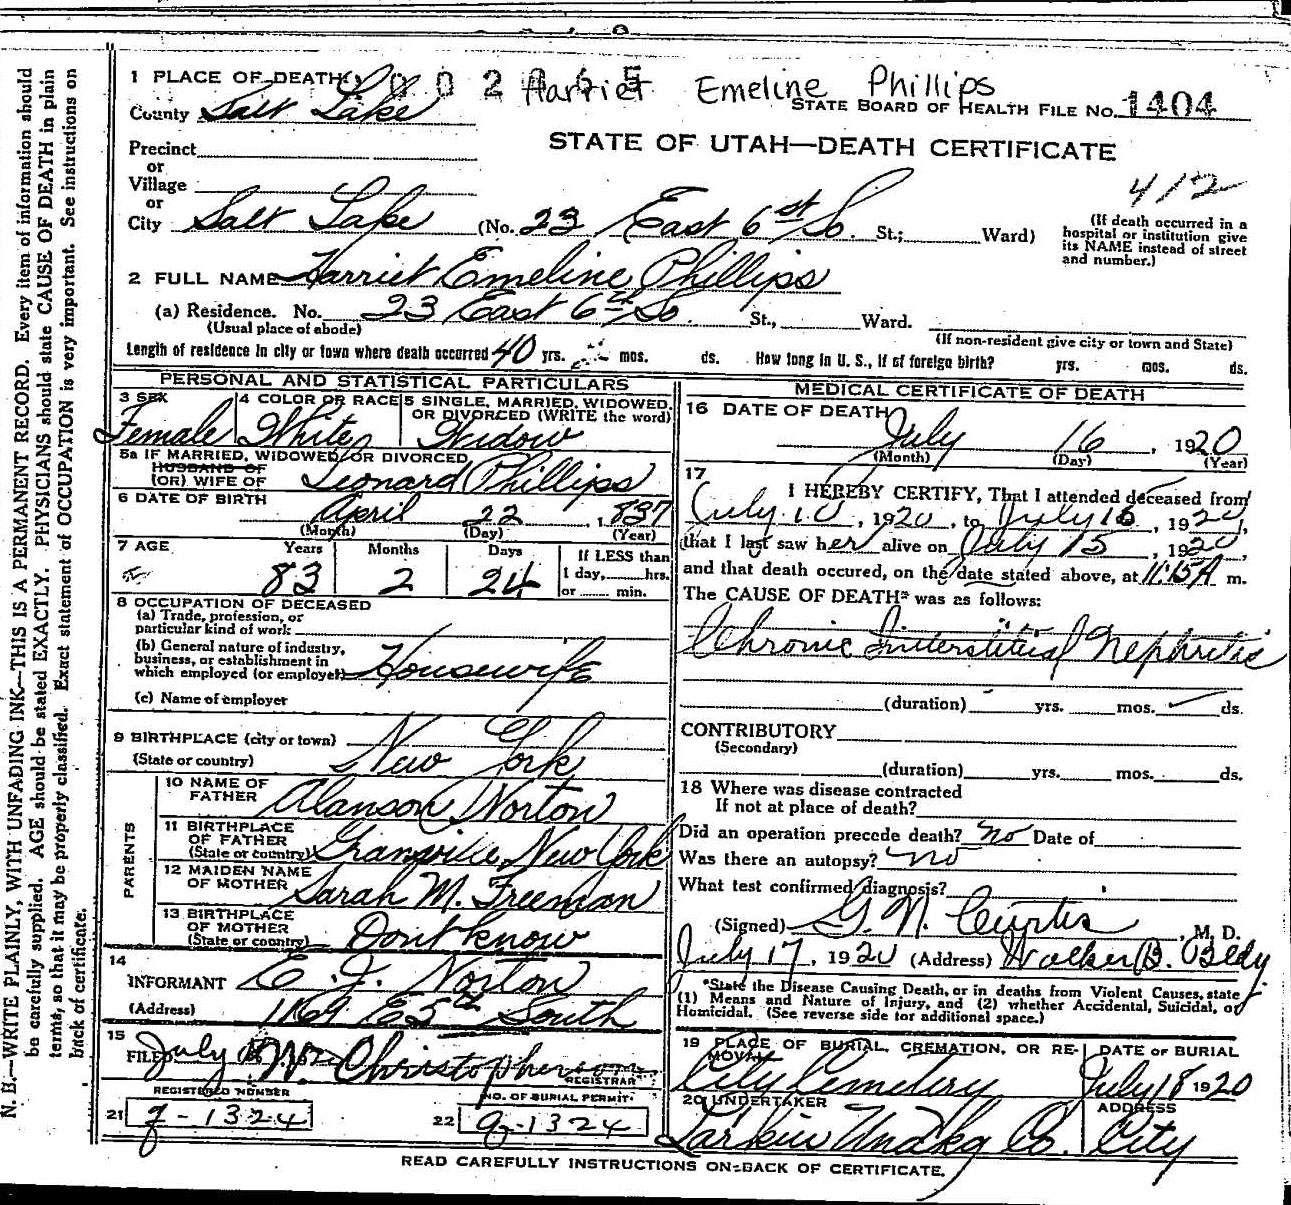 1 PLACE OF DEATH 0002065 Harriet Emeline Phillips
County Salt Lake STATE BOARD OF HEALTH FILE NO. 1404
STATE OF UTAH—DEATH CERTIFICATE
Precinct
or
Village 412
or
City Salt Lake (No. 23 East 6th So. St.; Ward)
(If death occurred in a
hospital or institution give
its NAME instead of street
and number.)
2 FULL NAME Harriet Emeline Phillips
(a) Residence. No. 23 East 6th So. St., Ward.
(Usual place of abode) (If non-resident give city or town and State)
Length of residence in city or town where death occurred 40 yrs. mos. ds. How long in U. S., if of foreign birth? yrs. mos. ds.
PERSONAL AND STATISTICAL PARTICULARS
3 SEX Female
4 COLOR OR RACE White
5 SINGLE, MARRIED, WIDOWED,
OR DIVORCED (WRITE the word)
Widow
5a IF MARRIED, WIDOWED OR DIVORCED
HUSBAND OF
(OR) WIFE OF Leonard Phillips
6 DATE OF BIRTH April 22, 1837
(Month) (Day) (Year)
7 AGE Years Months Days If LESS than
1 day, hrs.
83 2 24 or min.
8 OCCUPATION OF DECEASED
(a) Trade, profession, or
particular kind of work
(b) General nature of industry,
business, or establishment in
which employed (or employer) Housewife
(c) Name of employer
9 BIRTHPLACE (city or town)
(State or country) New York
PARENTS
10 NAME OF
FATHER Alanson Norton
11 BIRTHPLACE
OF FATHER
(State or country) Granville, New York
12 MAIDEN NAME
OF MOTHER Sarah M. Freeman
13 BIRTHPLACE
OF MOTHER
(State or country) Dont know
14
INFORMANT E. J. Norton
(Address) 1169 E 5th South
15
FILED July W. Christopherson
REGISTRAR
REGISTERED NUMBER NO. OF BURIAL PERMIT
21 g-1324 22 g-1324
MEDICAL CERTIFICATE OF DEATH
16 DATE OF DEATH
July 16, 1920
(Month) (Day) (Year)
17
I HEREBY CERTIFY, That I attended deceased from
July 10, 1920, to July 16, 1920,
that I last saw her alive on July 15, 1920,
and that death occured, on the date stated above, at 11:15A m.
The CAUSE OF DEATH* was as follows:
Chronic Interstitial Nephritis
(duration) yrs. mos. ds.
CONTRIBUTORY
(Secondary)
(duration) yrs. mos. ds.
18 Where was disease contracted
If not at place of death?
Did an operation precede death? no Date of
Was there an autopsy? no
What test confirmed diagnosis?
(Signed) G. N. Curtis, M. D.
July 17, 1920 (Address) Walker B. Bldg.
*State the Disease Causing Death, or in deaths from Violent Causes, state
(1) Means and Nature of Injury, and (2) whether Accidental, Suicidal, or
Homicidal. (See reverse side for additional space.)
19 PLACE OF BURIAL, CREMATION, OR RE-
MOVAL
City Cemetery
DATE OF BURIAL
July 18 1920
20 UNDERTAKER
Larkin Undtkg Co.
ADDRESS
City
READ CAREFULLY INSTRUCTIONS ON BACK OF CERTIFICATE.
N. B.—WRITE PLAINLY, WITH UNFADING INK—THIS IS A PERMANENT RECORD. Every item of information should
be carefully supplied. AGE should be stated EXACTLY. PHYSICIANS should state CAUSE OF DEATH in plain
terms, so that it may be properly classified. Exact statement of OCCUPATION is very important. See instructions on
back of certificate.